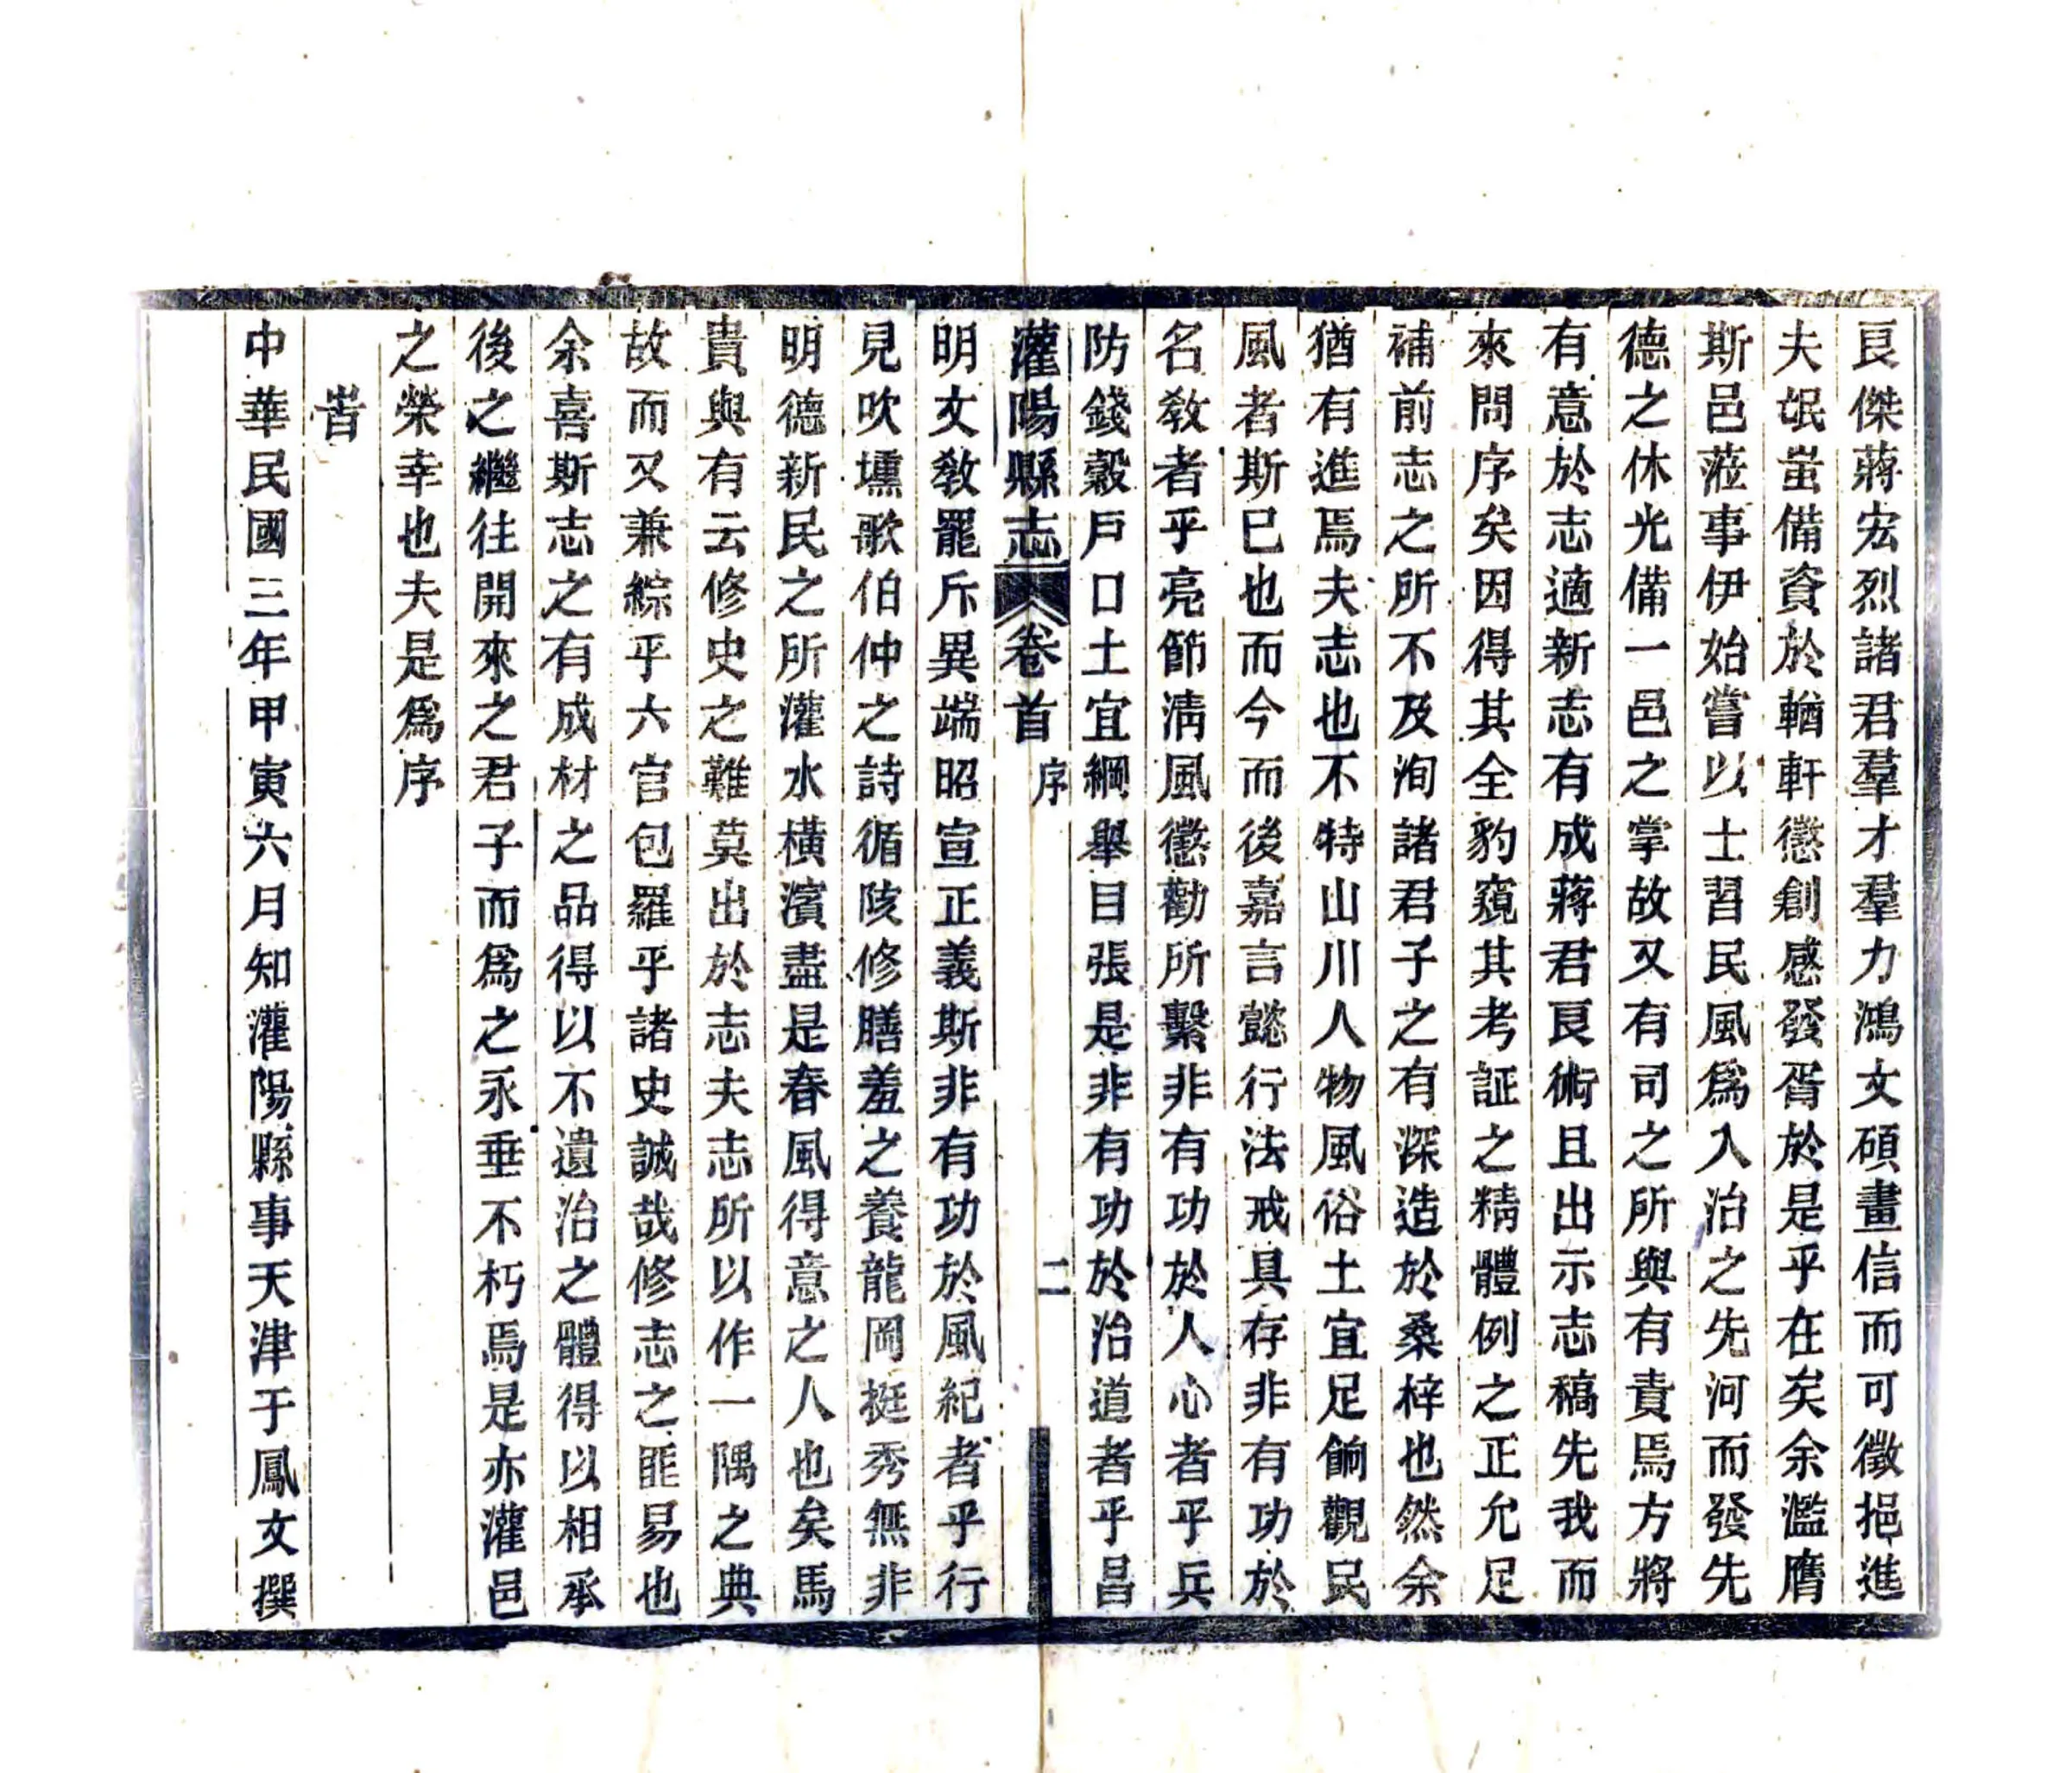 良傑蔣宏烈諸君羣才羣力鴻文碩畫信而可徵挹進
夫氓蚩備資於輶軒懲創感發胥於是乎在矣余濫膺
斯邑蒞事伊始嘗以士習民風爲入治之先河而發先
德之休光備一邑之掌故又有司之所與有責焉方將
有意於志適新志有成蔣君良術且出示志稿先我而
來問序矣因得其全豹窺其考証之精體例之正允足
補前志之所不及洵諸君子之有深造於桑梓也然余
猶有進焉夫志也不特山川人物風俗土宜足餉觀民
風者斯已也而今而後嘉言懿行法戒具存非有功於
名教者乎亮節淸風懲勸所繫非有功於人心者乎兵
防錢穀戶口土宜綱舉目張是非有功於治道者乎昌
灌陽縣志 卷首 序 二
明文敎罷斥異端昭宣正義斯非有功於風紀者乎行
見吹壎歌伯仲之詩循陔修膳羞之養龍岡挺秀無非
明德新民之所灌水橫濱盡是春風得意之人也矣馬
貴與有云修史之難莫出於志夫志所以作一隅之典
故而又兼綜乎六官包羅乎諸史誠哉修志之匪易也
余喜斯志之有成材之品得以不遺治之體得以相承
後之繼往開來之君子而爲之永垂不朽焉是亦灌邑
之榮幸也夫是爲序
旹
中華民國三年甲寅六月知灌陽縣事天津于鳳文撰